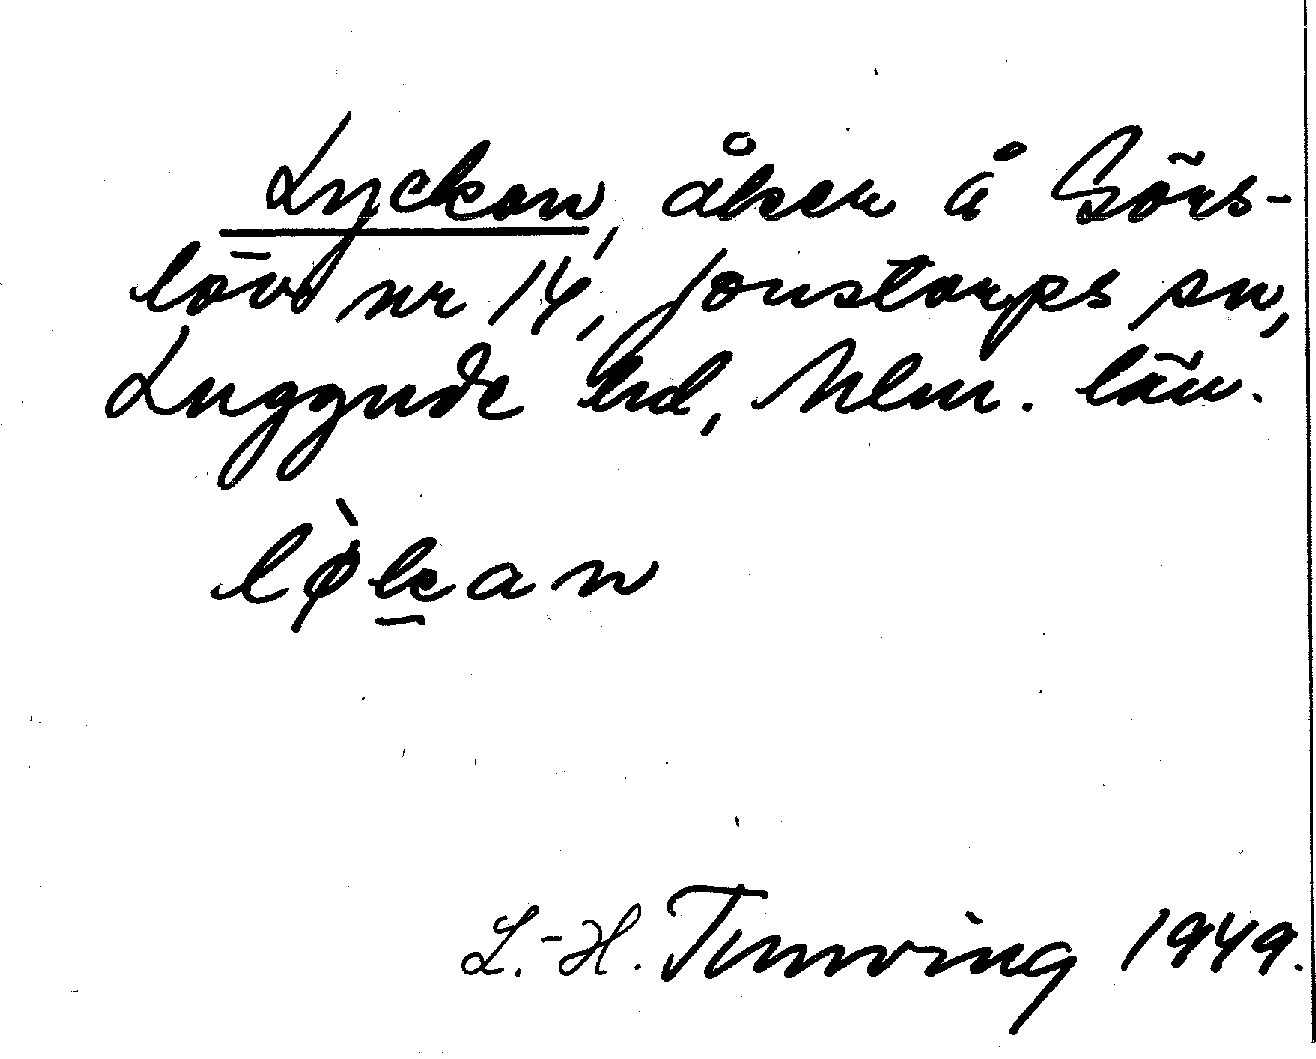 Lyckan, åker å Görs-
löv nr 14, Jonstorps sn,
Luggude hd, Mlm. län.
lø̀k̲an
L.-H. Tunving 1949.